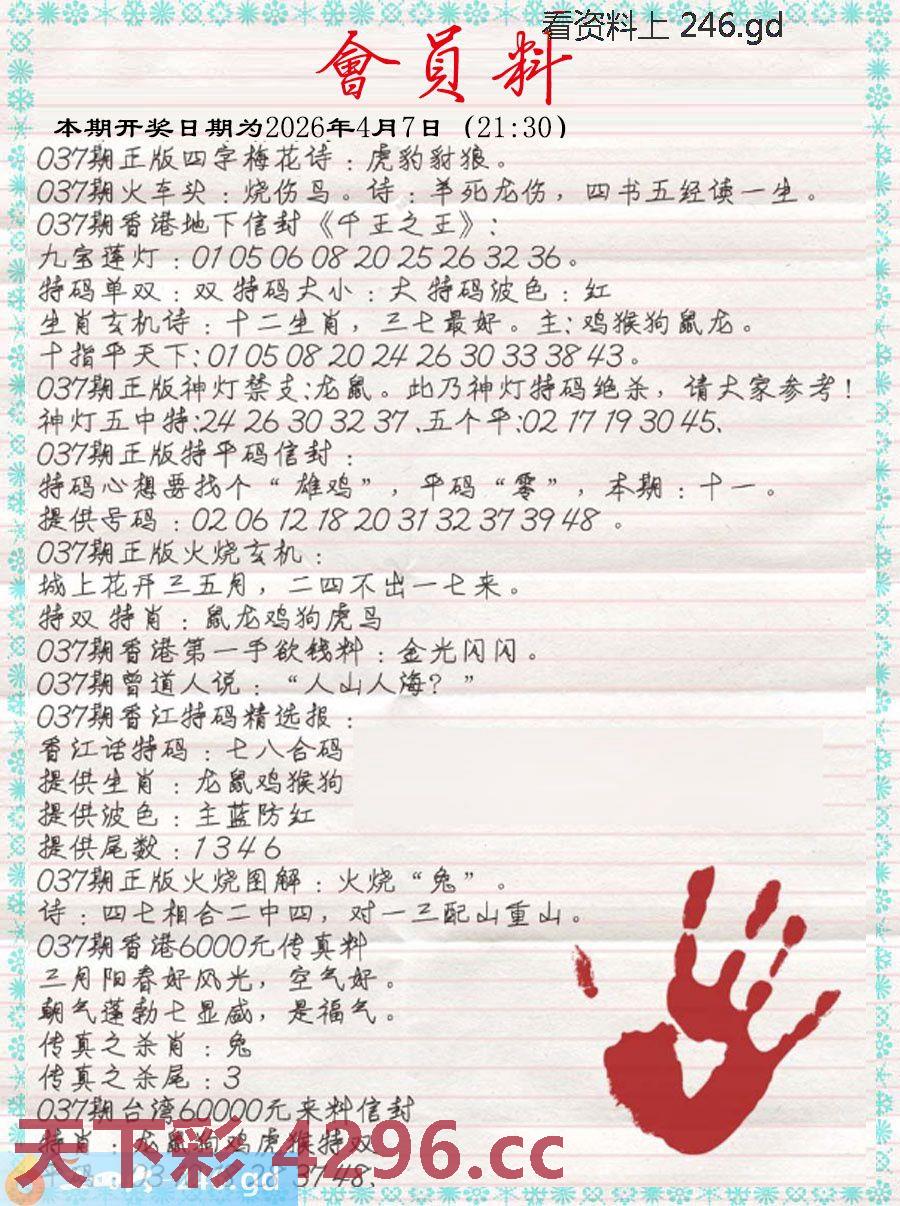 看资料上 246.gd
會員料
本期开奖日期为2026年4月7日（21:30）
037期正版四字梅花诗：虎豹豺狼。
037期火车头：烧伤鸟。诗：羊死龙伤，四书五经读一生。
037期香港地下信封《千王之王》：
九宝莲灯：01 05 06 08 20 25 26 32 36。
特码单双：双 特码大小：大 特码波色：红
生肖玄机诗：十二生肖，三七最好。主：鸡猴狗鼠龙。
十指平天下：01 05 08 20 24 26 30 33 38 43。
037期正版神灯禁支：龙鼠。此乃神灯特码绝杀，请大家参考！
神灯五中特：24 26 30 32 37、五个平：02 17 19 30 45、
037期正版特平码信封：
特码心想要找个“雄鸡”，平码“零”，本期：十一。
提供号码：02 06 12 18 20 31 32 37 39 48 。
037期正版火烧玄机：
城上花开三五月，二四不出一七来。
特双 特肖：鼠龙鸡狗虎马
037期香港第一手欲钱料：金光闪闪。
037期曾道人说：“人山人海？”
037期香江特码精选报：
香江话特码：七八合码
提供生肖：龙鼠鸡猴狗
提供波色：主蓝防红
提供尾数：1 3 4 6
037期正版火烧图解：火烧“兔”。
诗：四七相合二中四，对一三配山重山。
037期香港6000元传真料
三月阳春好风光，空气好。
朝气蓬勃七显感，是福气。
传真之杀肖：兔
传真之杀尾：3
037期台湾60000元来料信封
特肖：龙鼠狗鸡虎猴特双
天下彩.4296.cc
246.gd
37 48、